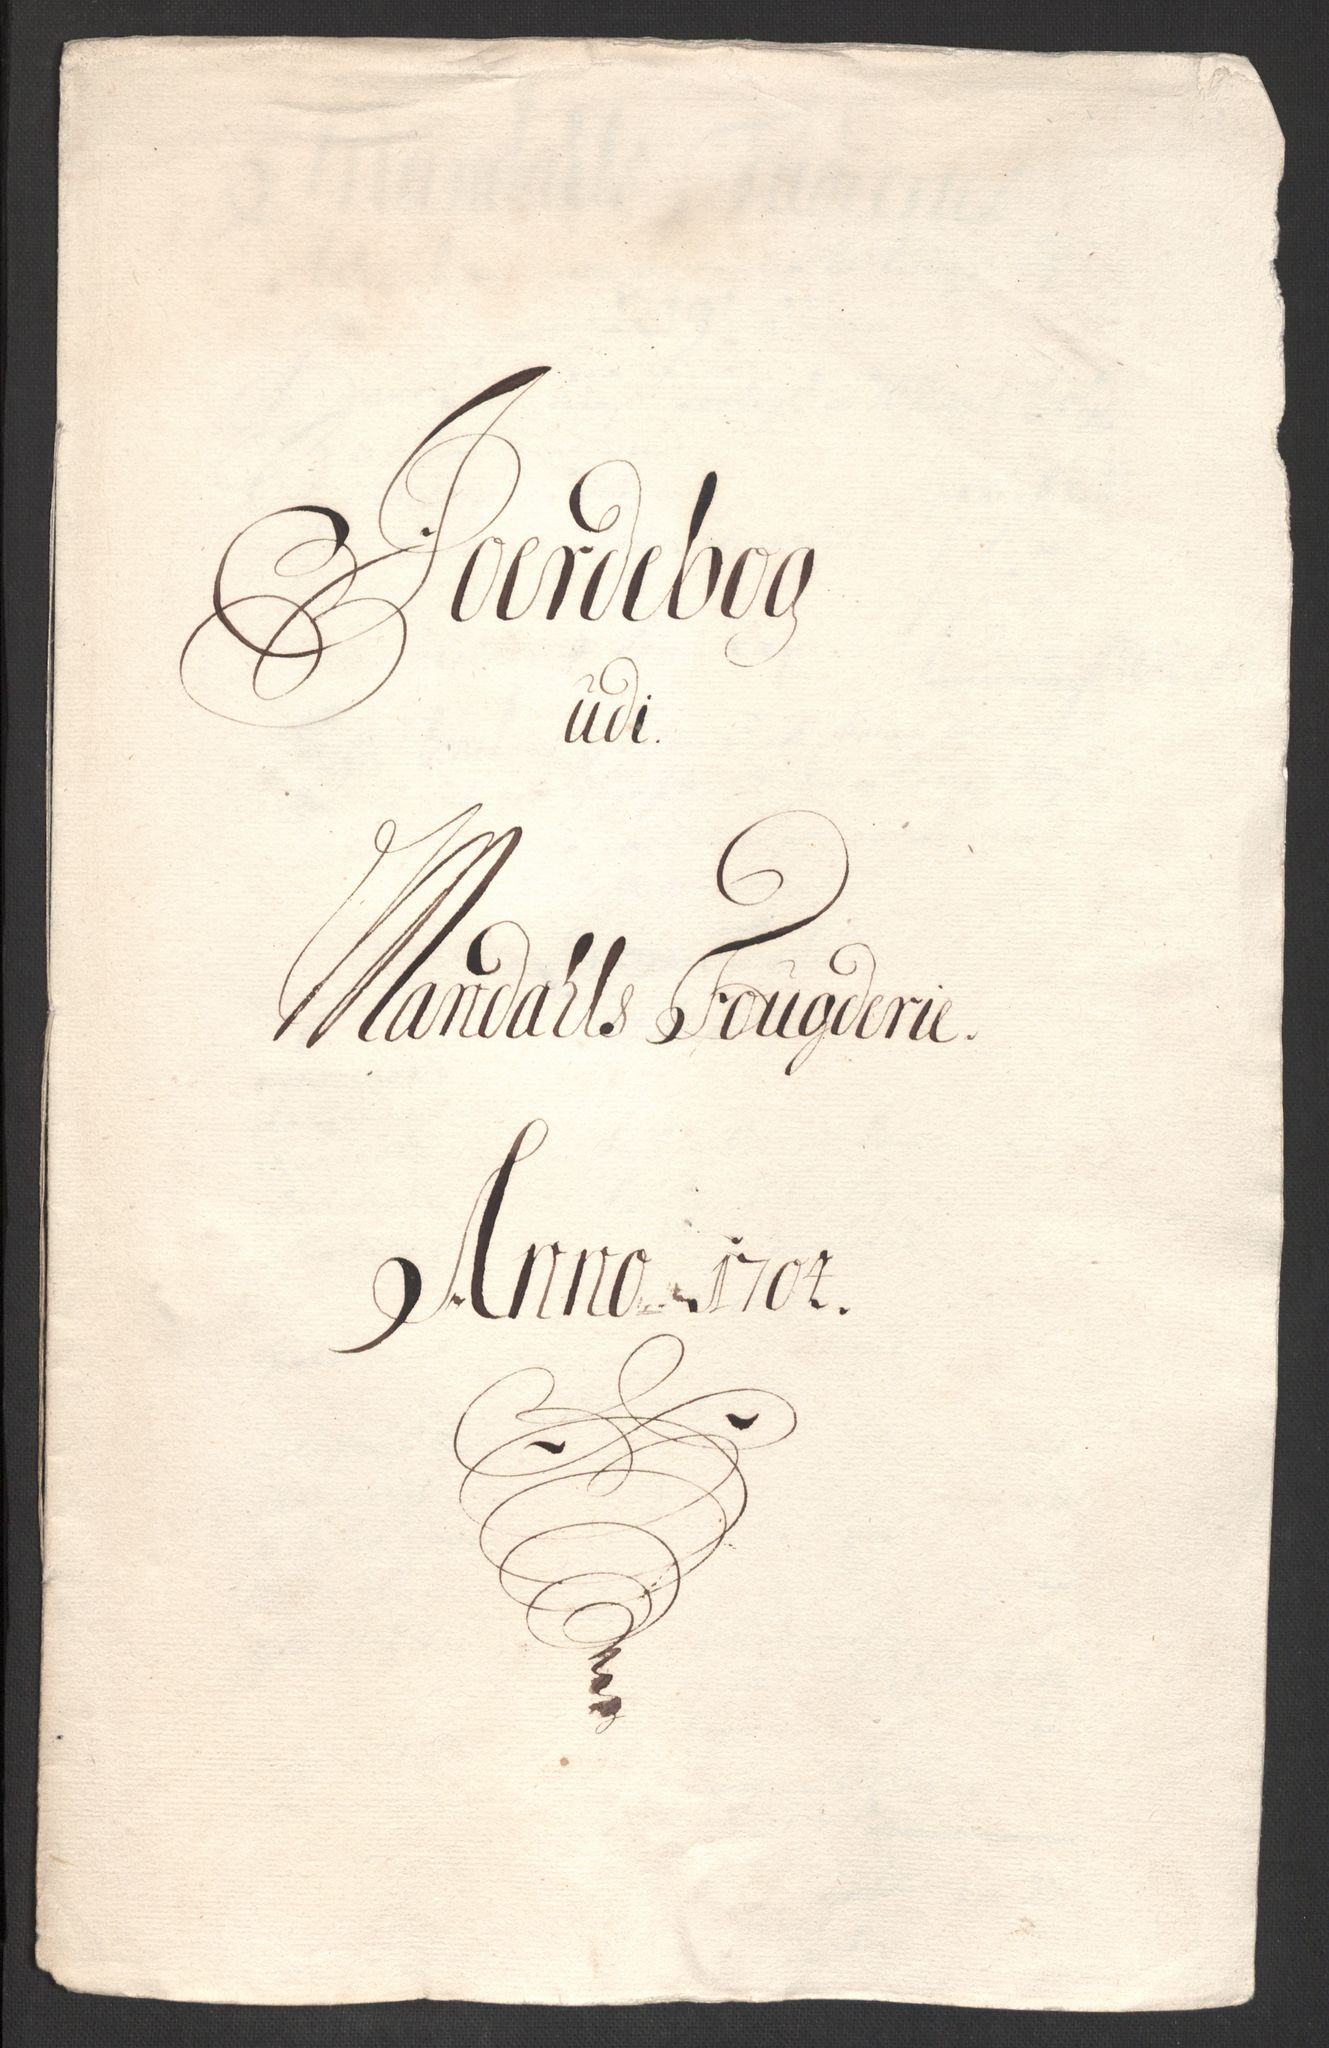 Joerdebog
udi.
Mandahls Fougderie.
Anno 1704.